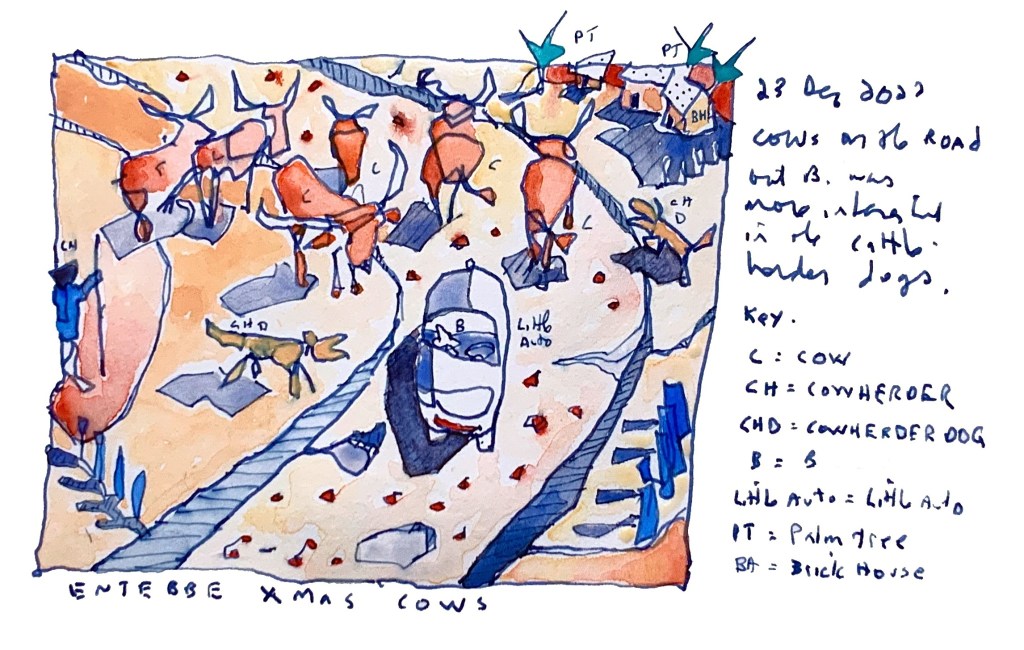 PT
PT
BH
23 Dec 2022
COWS on the ROAD
but B. was
more interested
in the cattle
herder dogs.
Key.
C = COW
CH = COWHERDER
CHD = COWHERDER DOG
B = B
Little Auto = Little Auto
PT = Palm tree
BA = Brick House
C
C
C
C
C
C
CH
D
CH
CHD
B
Little
Auto
ENTEBBE XMAS COWS